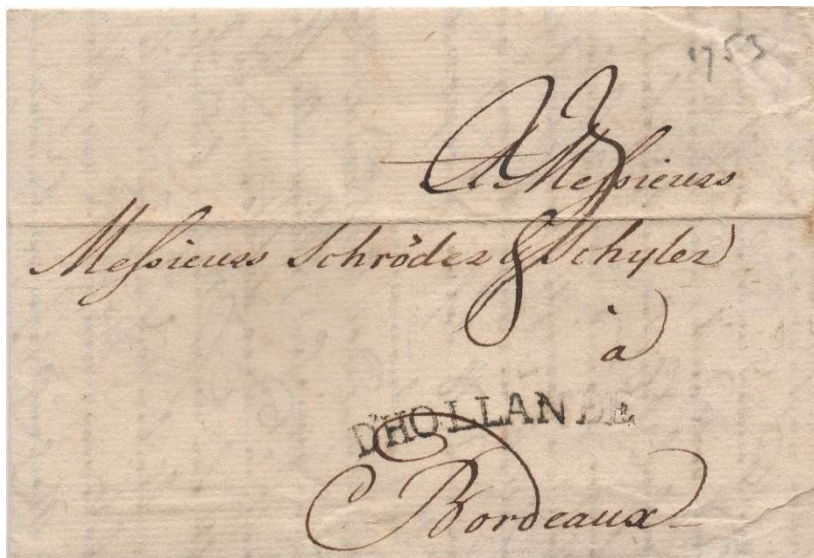 1753
A Messieurs
Messieurs Schröder & Schyler
à
D'HOLLANDE
Bordeaux